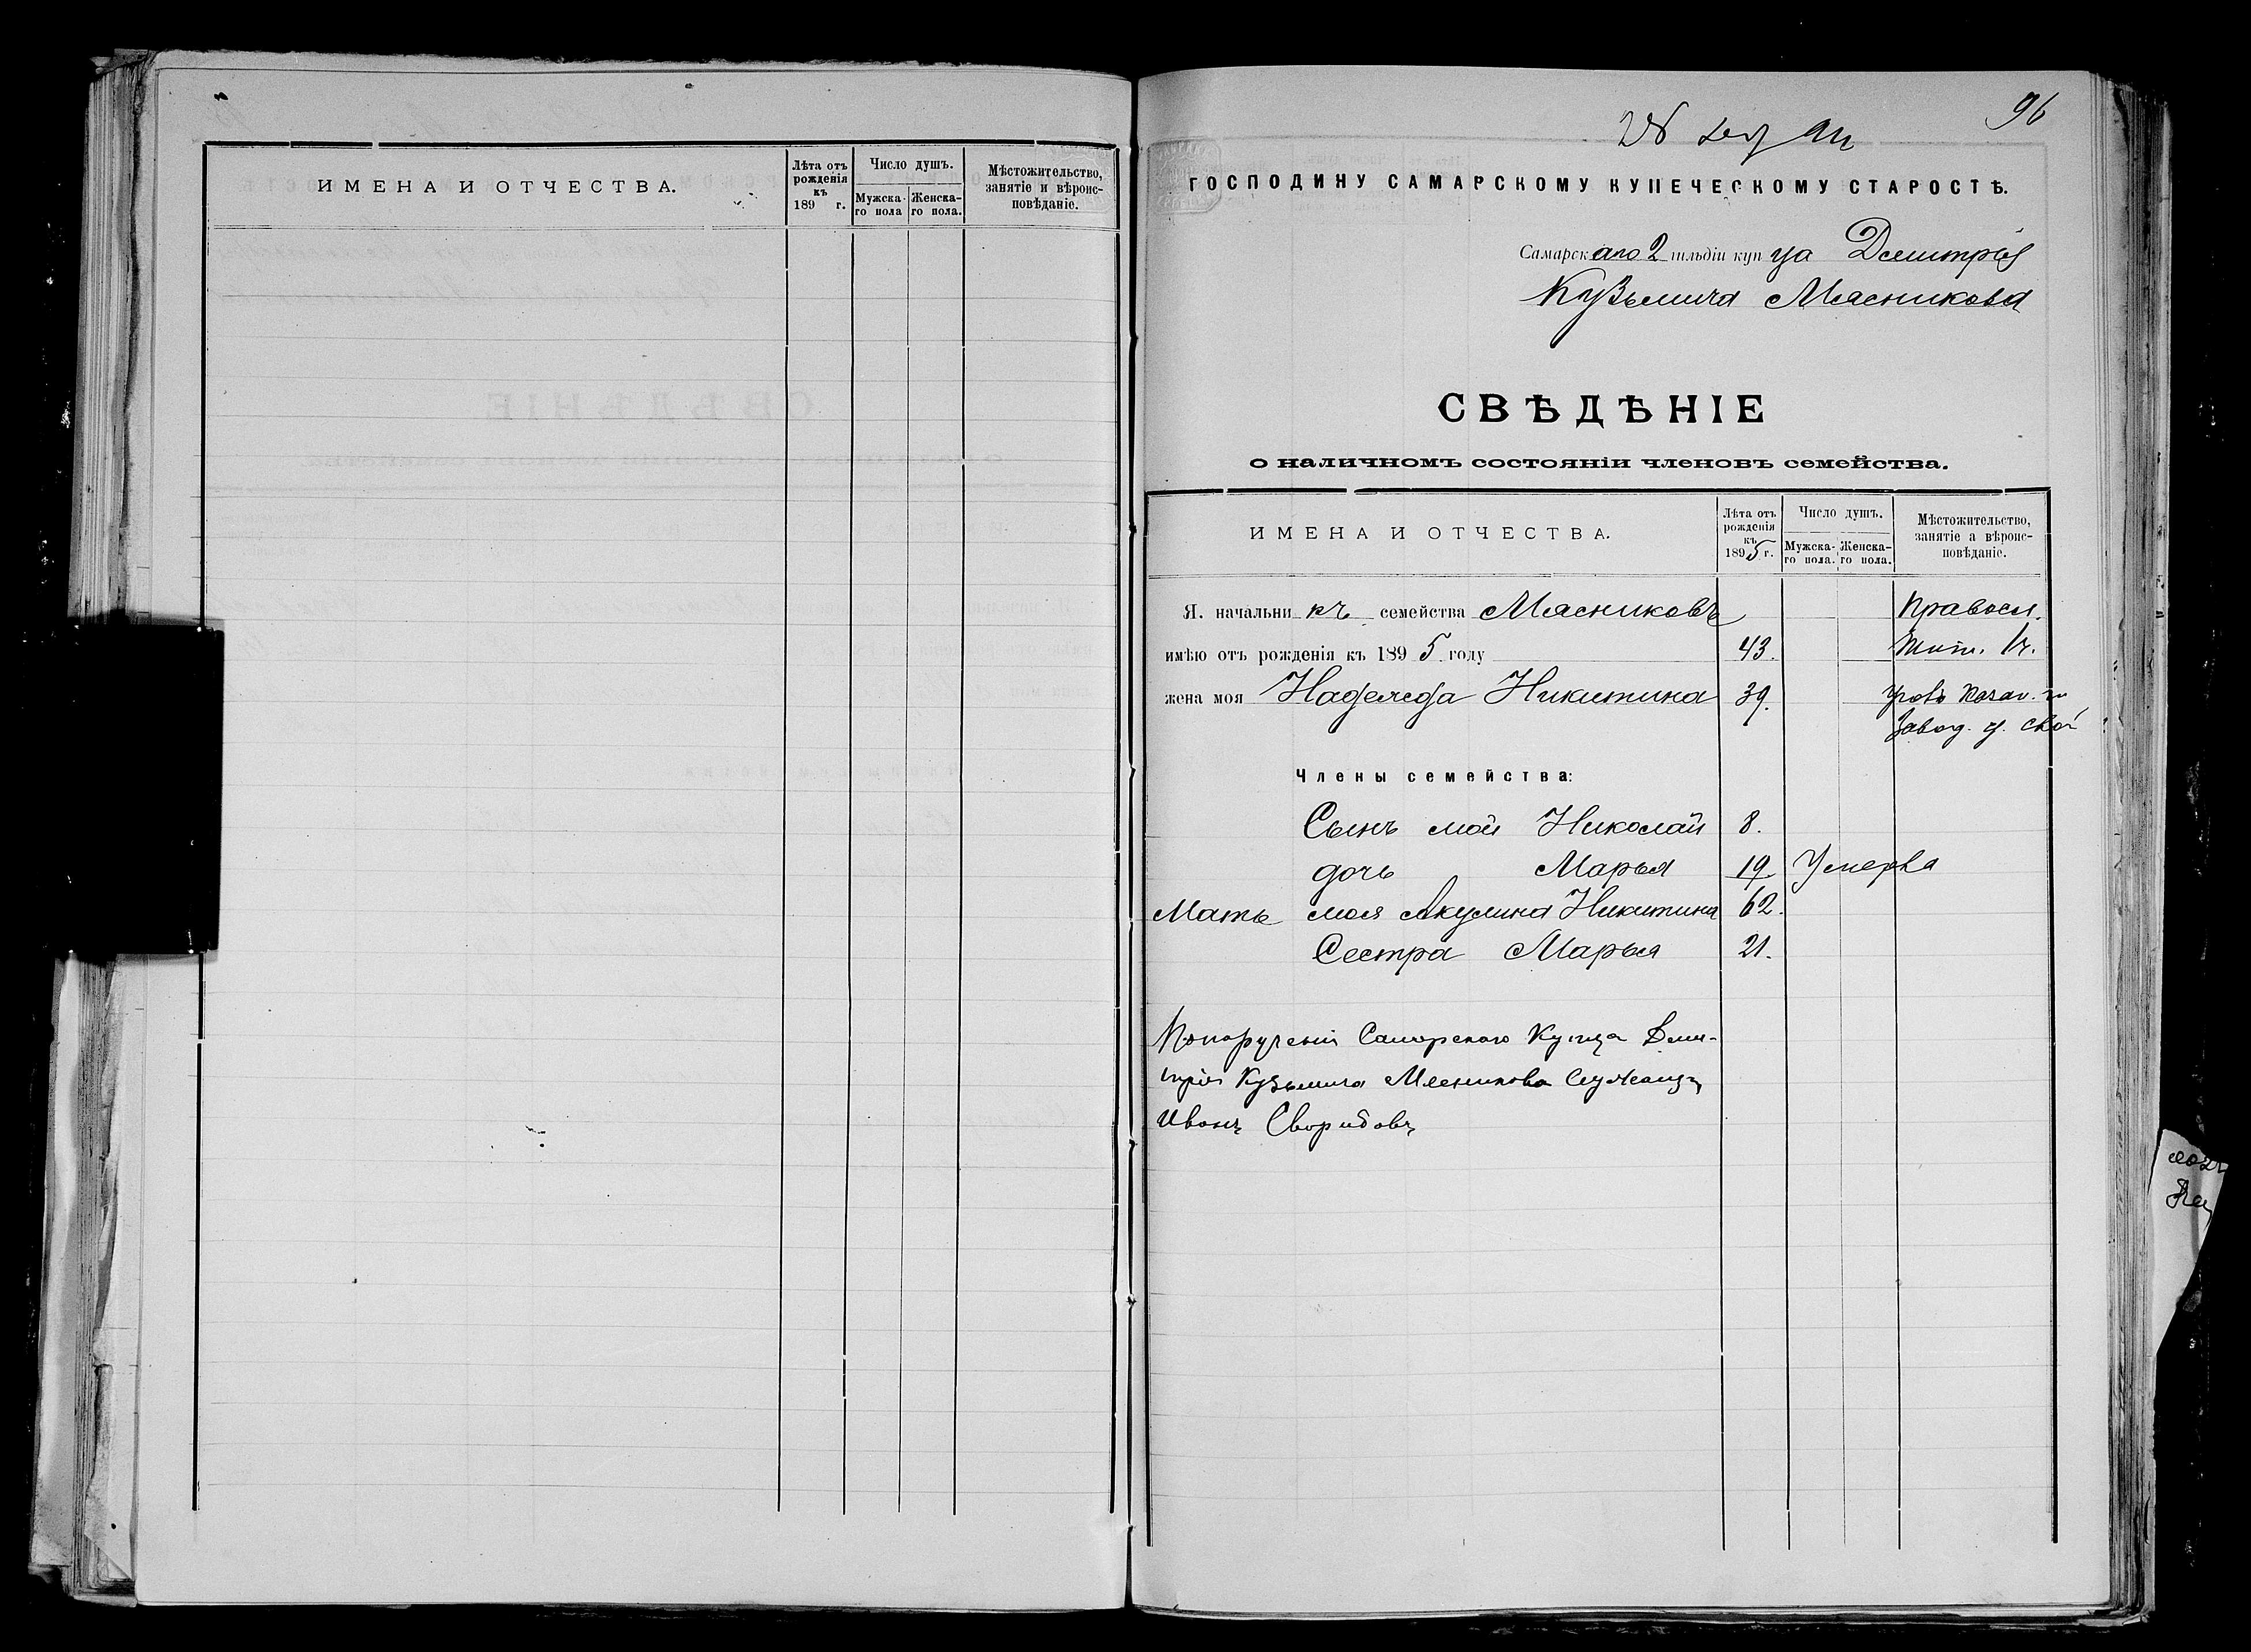 ИМЕНА И ОТЧЕСТВА.
Лѣта отъ рожденія къ 189 г.
Число душъ.
Мужска-го пола
Женска-го пола.
Мѣстожительство, занятіе и вѣроис-повѣданіе.
96
ГОСПОДИНУ САМАРСКОМУ КУПЕЧЕСКОМУ СТАРОСТѢ.
Самарскаго 2 гильдіи купца Дмитрія
Кузьмича Мясникова
СВѢДѢНІЕ
о наличномъ состояніи членовъ семейства.
ИМЕНА И ОТЧЕСТВА.
Лѣта отъ рожденія къ 1895 г.
Число душъ.
Мужска-го пола.
Женска-го пола.
Мѣстожительство, занятіе а вѣроис-повѣданіе.
Я. начальникъ семейства Мясниковъ Правосл.
имѣю отъ рожденія къ 1895 году 43. Жит.
жена моя Надежда Никитина 39.
Завод.
Члены семейства:
Сынъ мой Николай 8.
дочь Марья 19. Умерла
Мать моя Акулина Никитина 62.
Сестра Марья 21.
Попорученію Самарскаго Купца Дми-
трія Кузьмича Мясникова Служащ
Иванъ Своридовъ